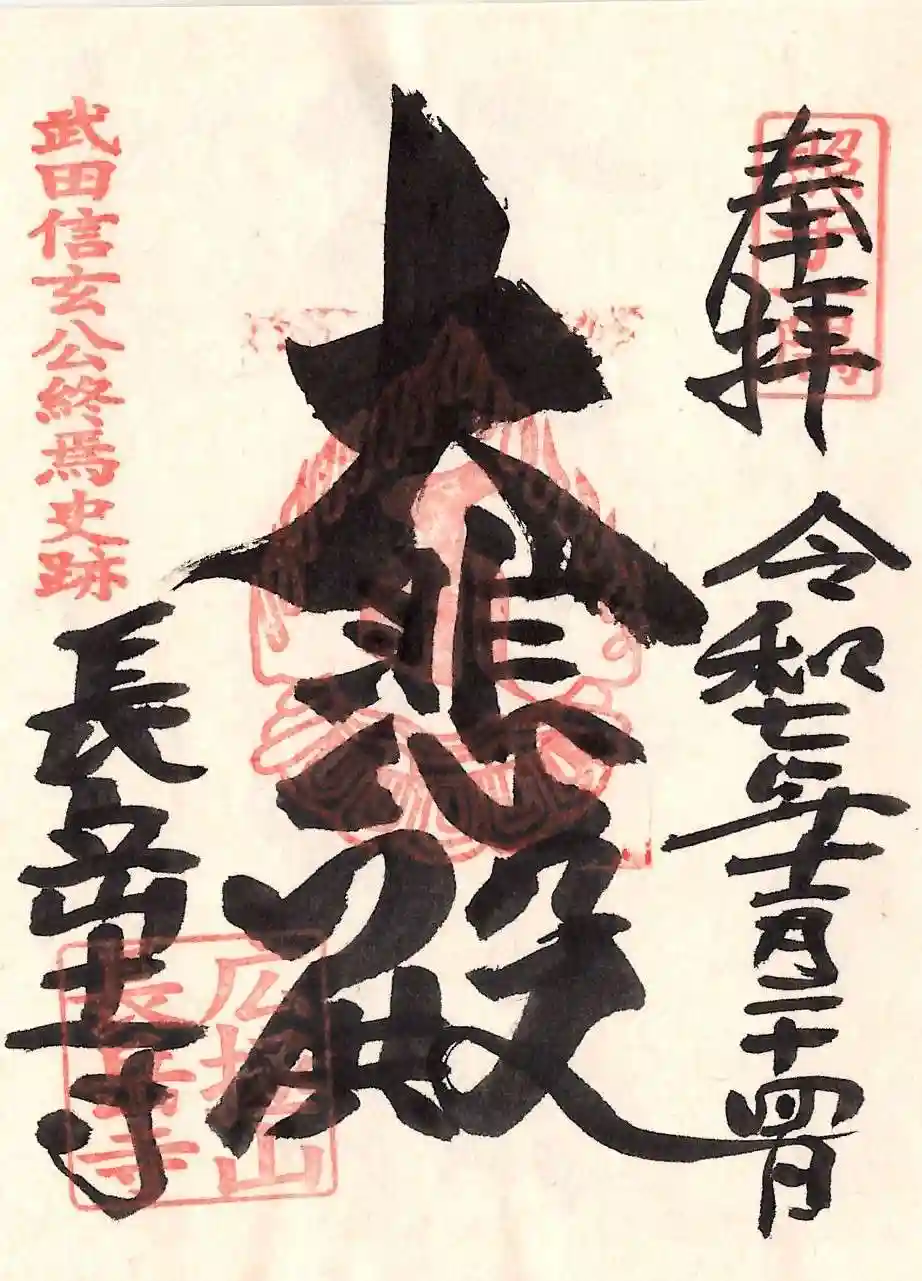 奉拝
令和七年十一月二十四日
照于一隅
大悲殿
武田信玄公終焉史跡
長岳寺
広拯山
長岳寺